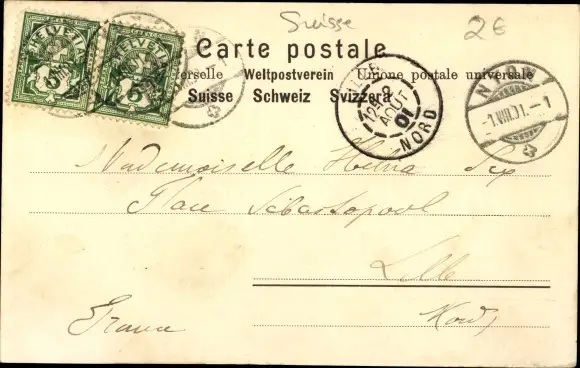 Suisse
2€
HELVETIA HELVETIA
5 5
Carte postale
Weltpostverein Union postale universale
Suisse Schweiz Svizzera
2
AOUT
01
NORD
NYON
1.VIII.01.-1
Mademoiselle
Place Sébastopool
Lille
Nord
France